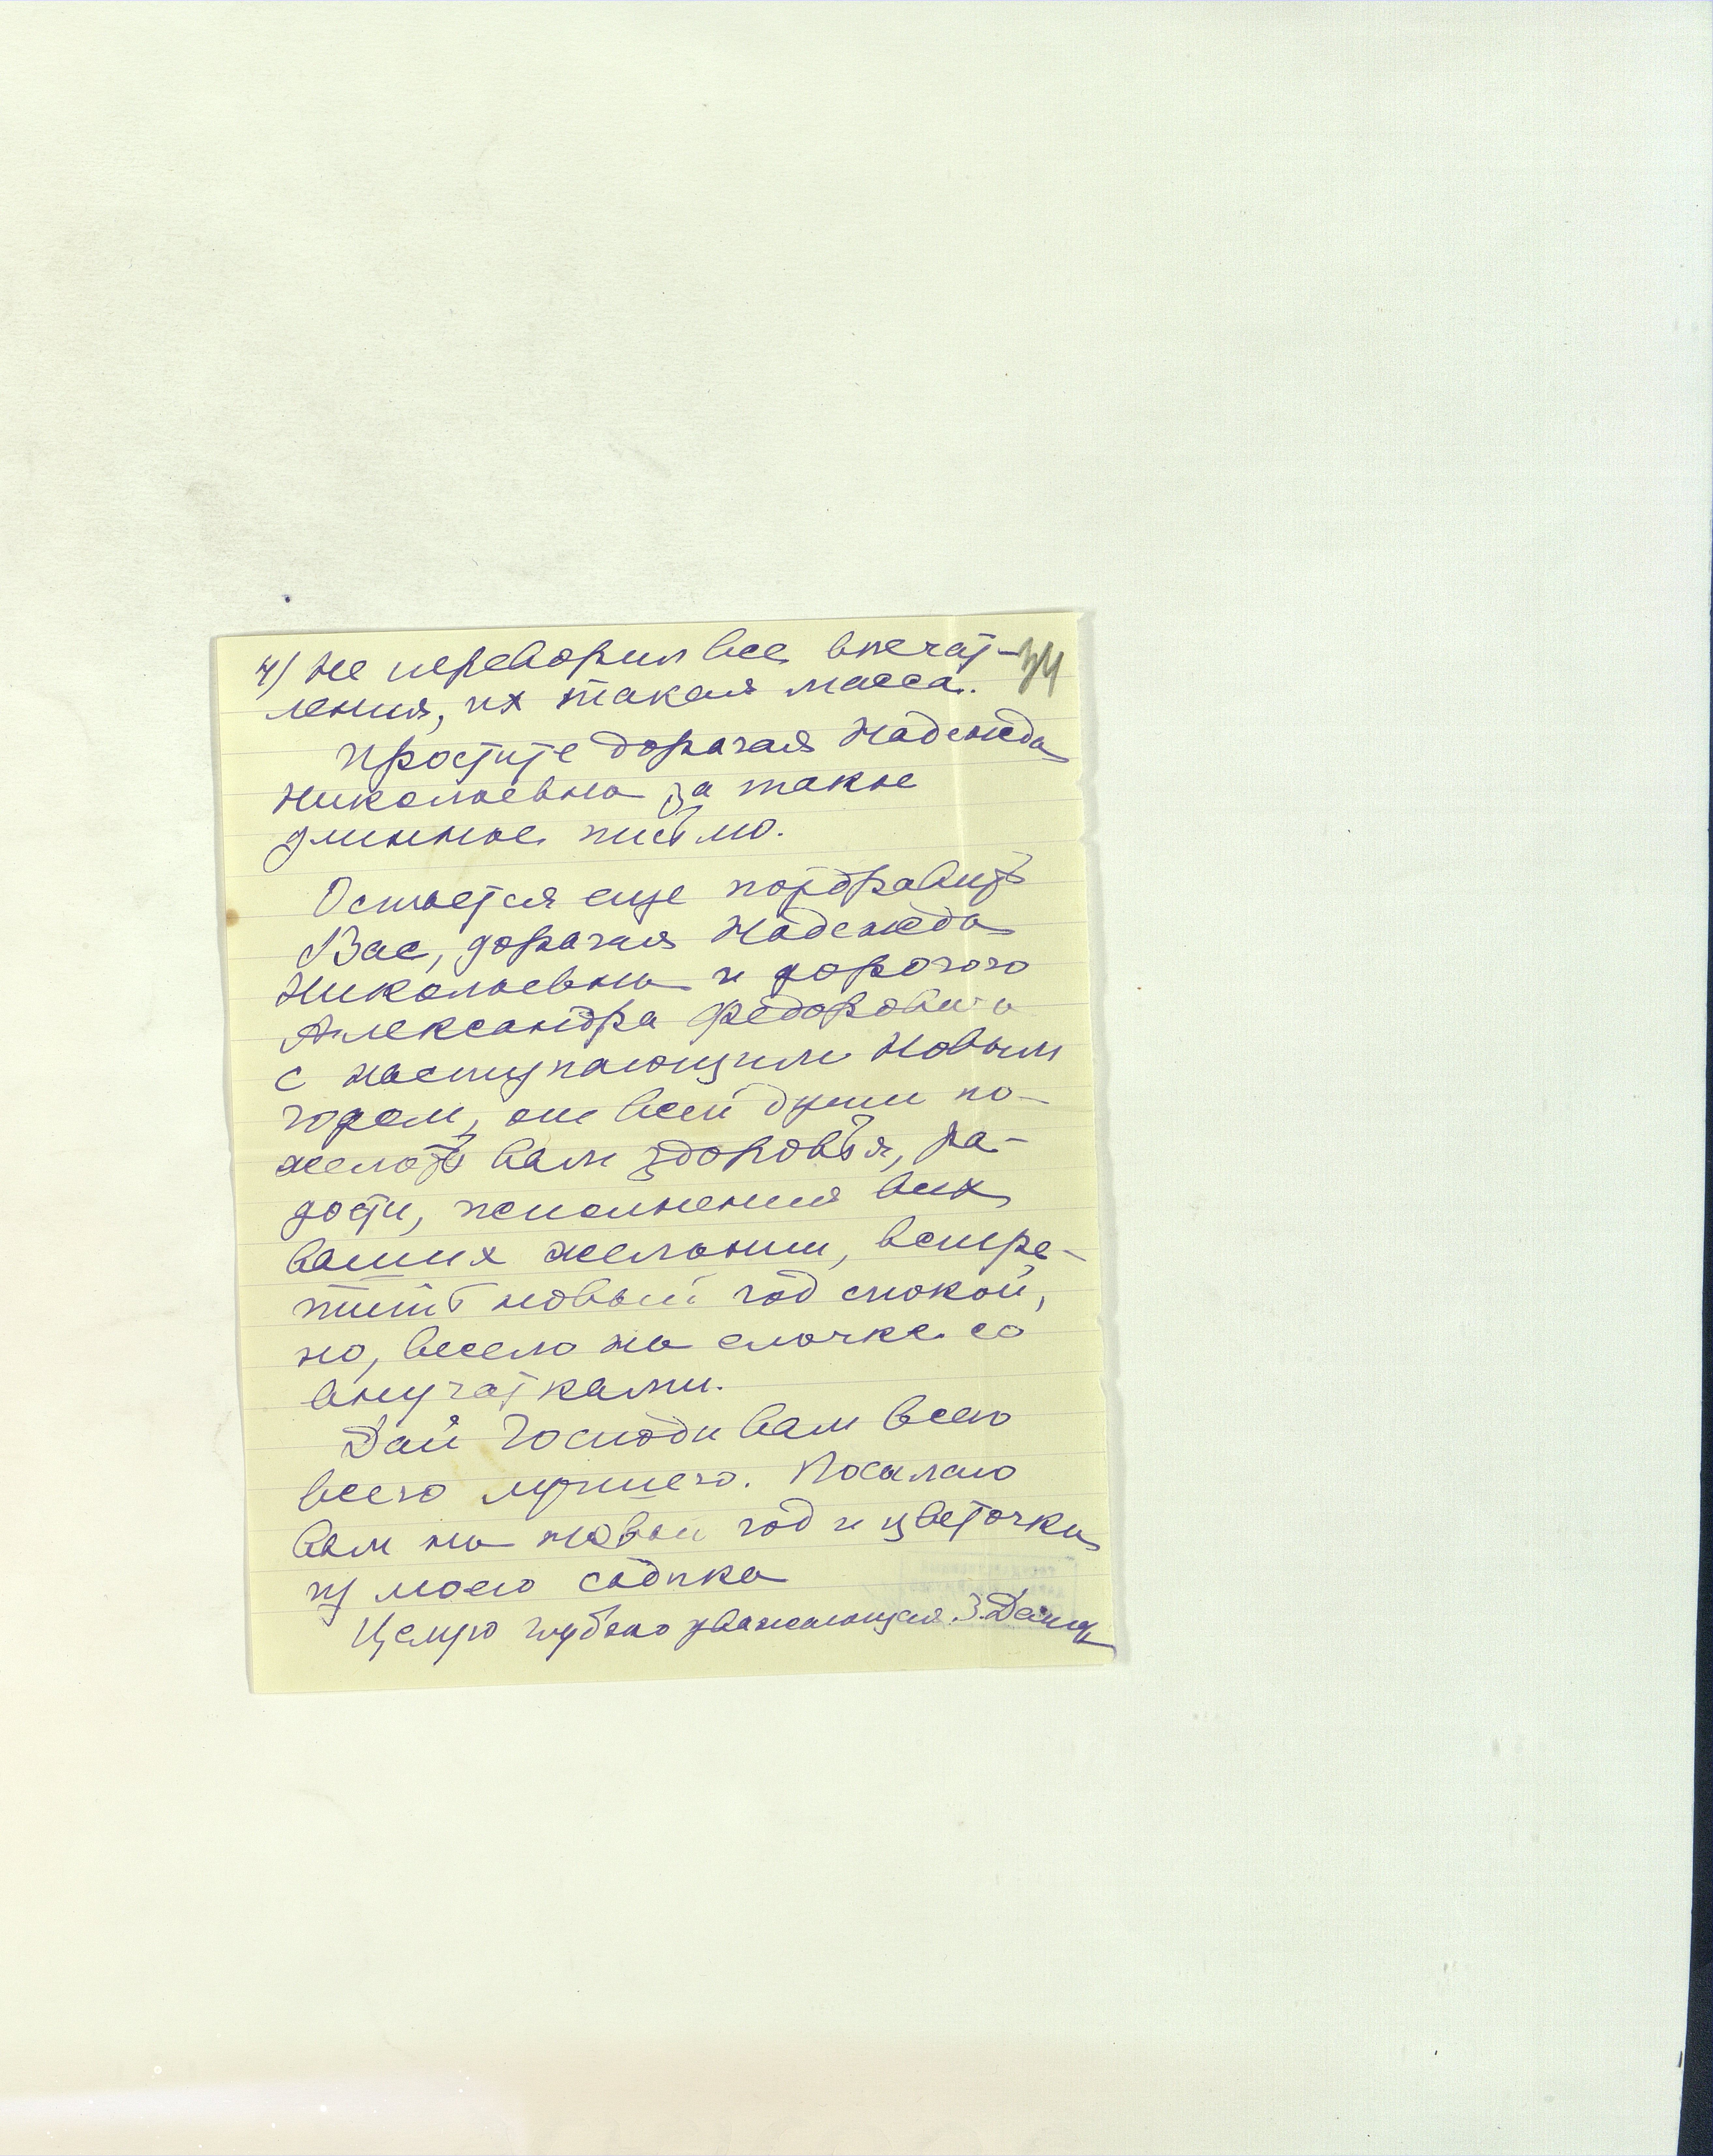 4) не переварил все впечат- 34
ления, их такая масса.
Простите дорагая Надежда
Николаевна за такое
длинное письмо.
Остается еще поздравить
Вас, дорагая Надежда
Николаевна и дорогого
Александра Федоровича
с наступающим Новым
годом, от всей души по-
желать Вам здоровья, ра-
дости, исполнения всех
ваших желании, встре-
тить новый год спокой,
но, весело на елочке со
внучатками.
Дай Господи Вам всего
всего лучшего. Посылаю
Вам на новый год и цветочки
из моего садика
Целую глубоко уважающая З.